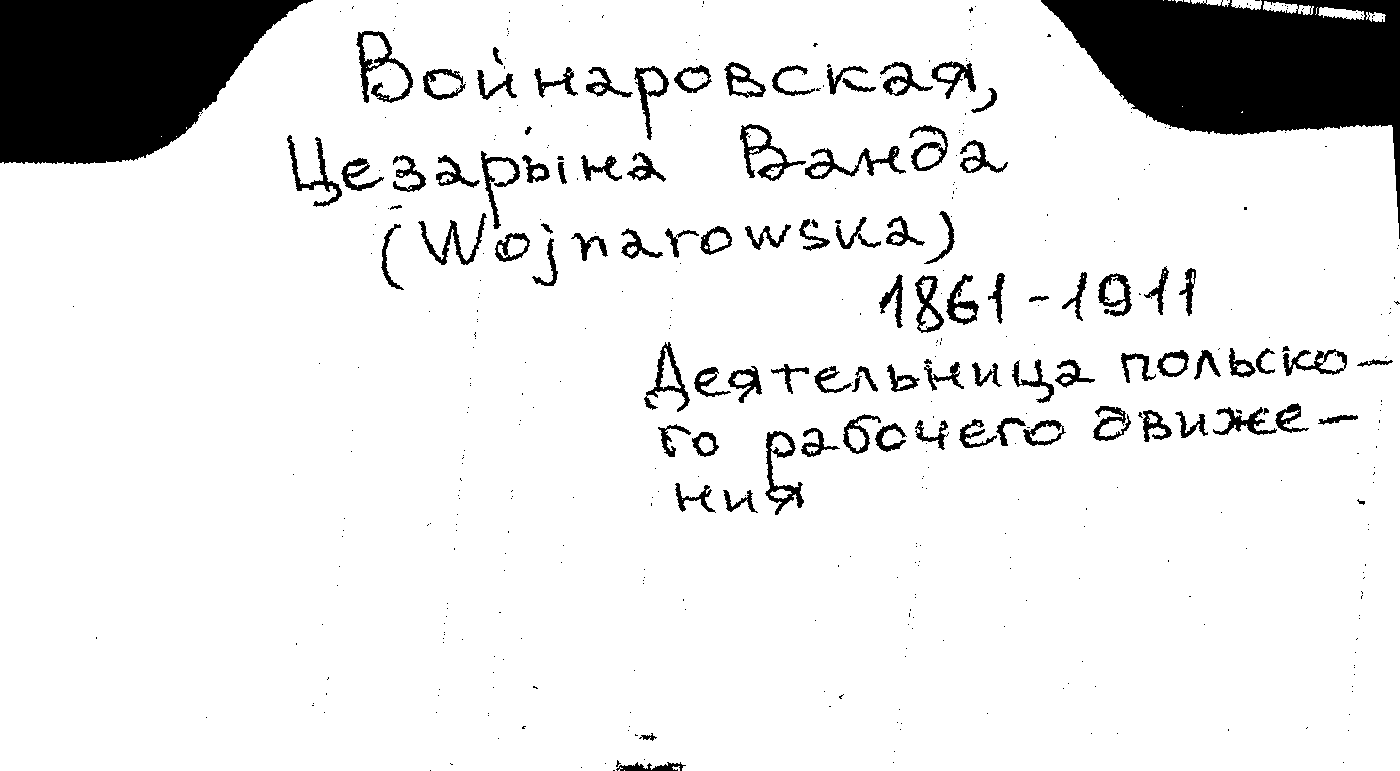 Войнаровская,
Цезарына Ванда
(Wojnarowska)
1861-1911
Деятельница польско-
го рабочего движе-
ния